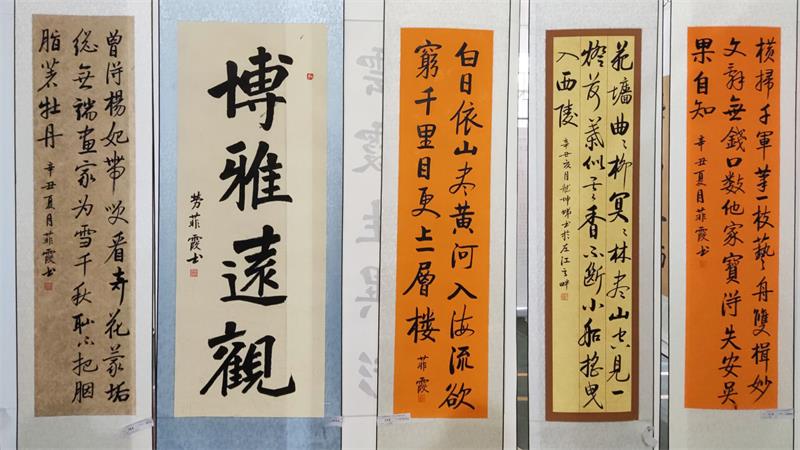 曾得楊妃帶咲看奇花蒙垢
総無端画家为雪千秋耻不把胭
脂牡丹
辛丑夏月菲霞书
博雅遠觀
劳菲霞书
白日依山尽黄河入海流欲
窮千里目更上一層樓
菲霞
苑墙曲々柳冥々林尽山空見一
燈荷葉似云香不断小船摇曳
入西陵
辛丑月乾坤书於左江之畔
横掃千軍筆一枝藝舟雙楫妙
文辭無錢口數他家寶得失安吴
果自知
辛丑夏月菲霞书